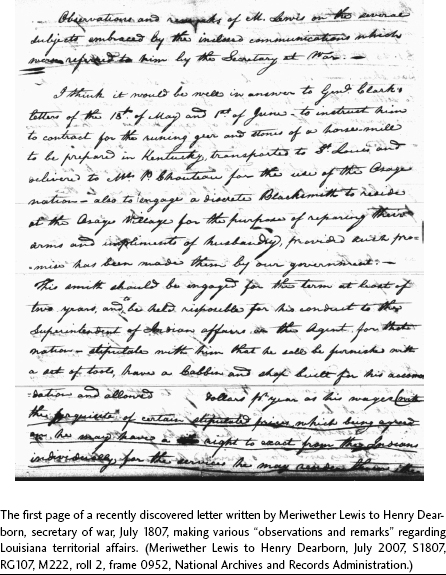 Observations and remarks of M. Lewis on the several
subjects embraced by the inclosed communications which
were refered to him by the Secretary at War. —
I think it would be well in answer to Genl Clark's
letters of the 18th of May and 1st of June - to instruct him
to contract for the runing geer and stones of a horse-mill
to be prepared in Kentucky, transported to St. Louis and
deliver to Mr. P. Chouteau for the use of the Osage
nation - also to engage a discrete Blacksmith to reside
at the Osage Village for the purpose of repairing their
arms and impliments of husbandry, provided such pro-
mise has been made them by our government. —
This smith should be engaged for the term at least of
two years, and be held responsible for his conduct to the
Superintendent of Indian affairs or the Agent for that
nation - stipulate with him that he shall be furnished with
a set of tools, have a Cabbin and shop built for his accom
dation and allowed dollars pr. year as his wages (with
the perquisite of certain stipulated prices which being agreed
on he may have a right to exact from the Indians
individually for the services he may render them
The first page of a recently discovered letter written by Meriwether Lewis to Henry Dear-
born, secretary of war, July 1807, making various "observations and remarks" regarding
Louisiana territorial affairs. (Meriwether Lewis to Henry Dearborn, July 2007, S1807,
RG107, M222, roll 2, frame 0952, National Archives and Records Administration.)